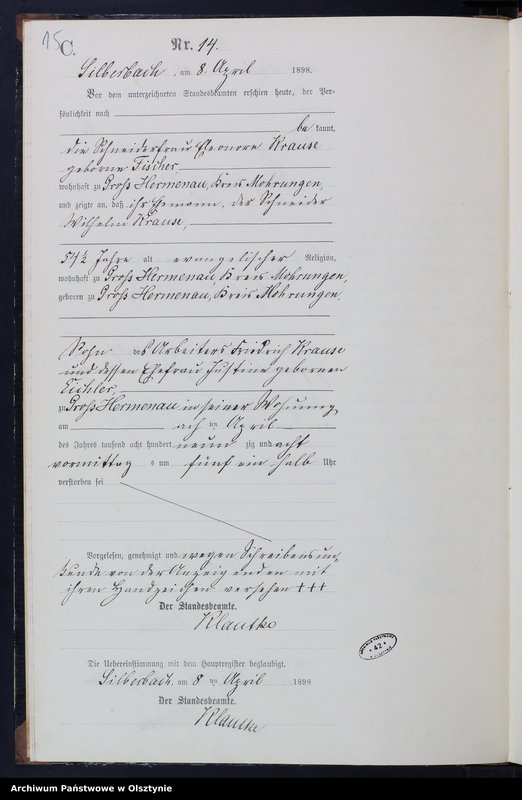 15
C.
Nr. 14.
Silberbach, am 8. April 1898.
Vor dem unterzeichneten Standesbeamten erschien heute, der Per-
sönlichkeit nach
bekannt,
die Schneiderfrau Eleonore Krause
geborne Fischer,
wohnhaft zu Groß Hermenau, Kreis Mohrungen,
und zeigte an, daß ihr Ehemann, der Schneider
Wilhelm Krause,
54 1/2 Jahre alt evangelischer Religion,
wohnhaft zu Groß Hermenau, Kreis Mohrungen,
geboren zu Groß Hermenau, Kreis Mohrungen,
Sohn des Arbeiters Friedrich Krause
und dessen Ehefrau Justine geborenen
Eichler,
zu Groß Hermenau in seiner Wohnung
am acht ten April
des Jahres tausend acht hundert neun zig und acht
vormittag s um fünf ein halb Uhr
verstorben sei
Vorgelesen, genehmigt und wegen Schreibensun-
kunde von der Anzeigenden mit
ihren Handzeichen versehen +++
Der Standesbeamte.
Klautke
Die Uebereinstimmung mit dem Hauptregister beglaubigt.
Silberbach, am 8 ten April 1898
Der Standesbeamte.
Klautke
42
Archiwum Państwowe w Olsztynie